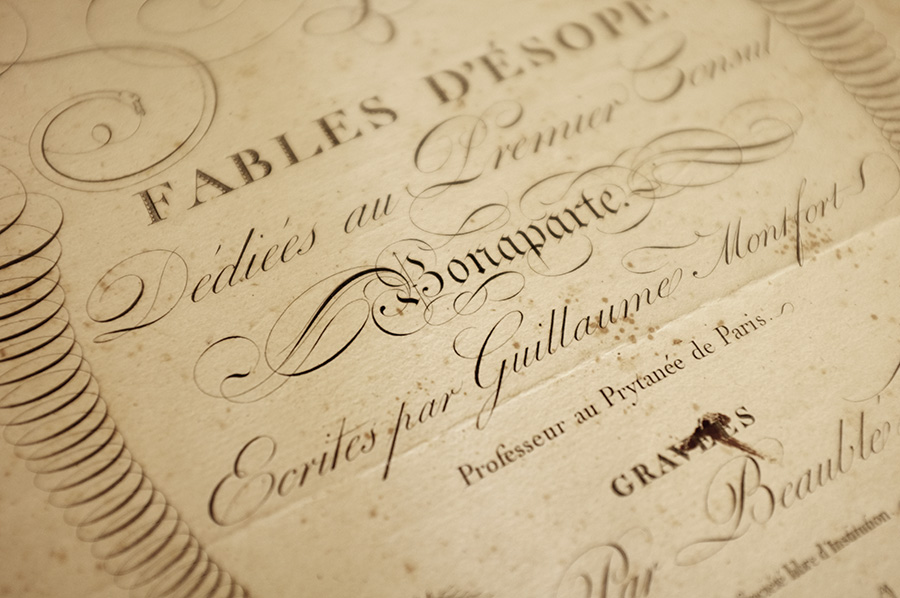 FABLES D'ÉSOPE
Dédiées au Premier Consul
Bonaparte.
Ecrites par Guillaume Montfort
Professeur au Prytanée de Paris.
GRAVÉES
Par Beaublé
libre d'Institution